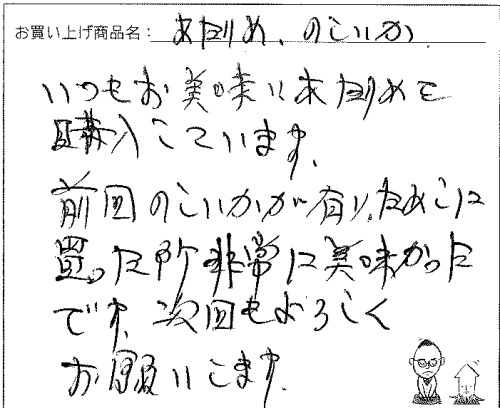 お買い上げ商品名: あたりめ、のしいか
いつもお美味しいあたりめを
購入しています。
前回のしいかが有り、ためしに
買った所非常に美味かった
です。次回もよろしく
お願いします。